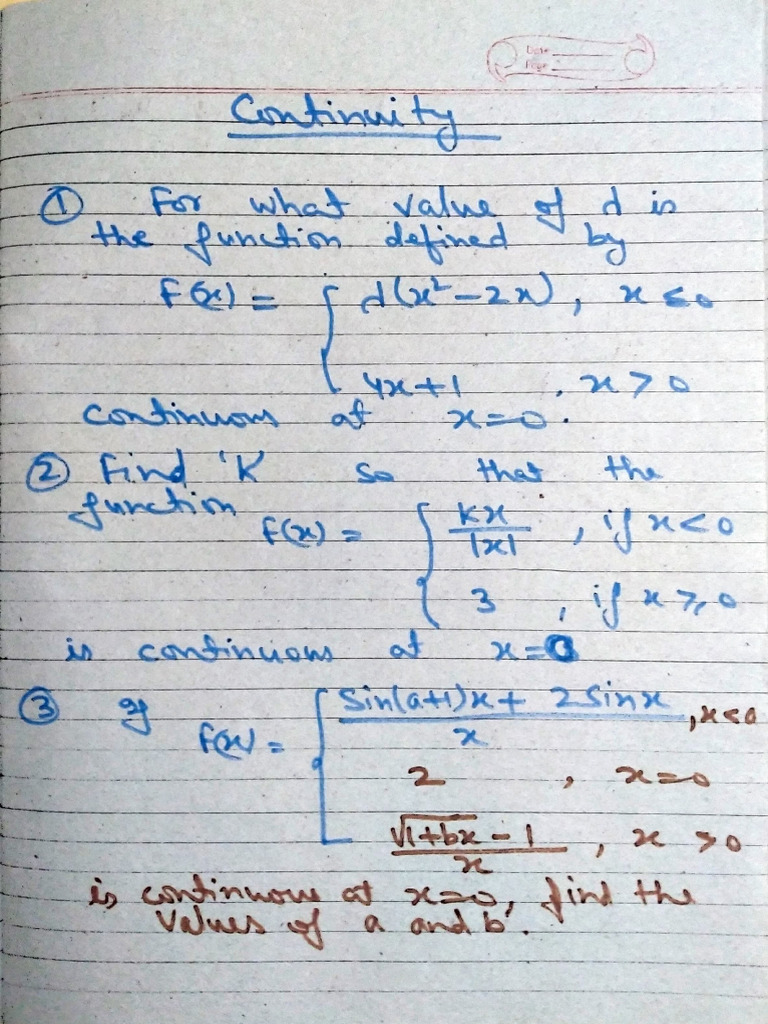 Date
Page
Continuity
① For what value of d is
the function defined by
F(x) = { d(x² - 2x), x ≤ 0
4x + 1 , x > 0
continuous at x=0.
② Find 'K so that the
function
F(x) = { Kx/|x| , if x < 0
3 , if x ≥ 0
is continuous at x=0
③ If
F(x) = { Sin(a+1)x + 2 Sinx / x , x < 0
2 , x = 0
√1+bx - 1 / x , x > 0
is continuous at x=0, find the
values of a and b'.